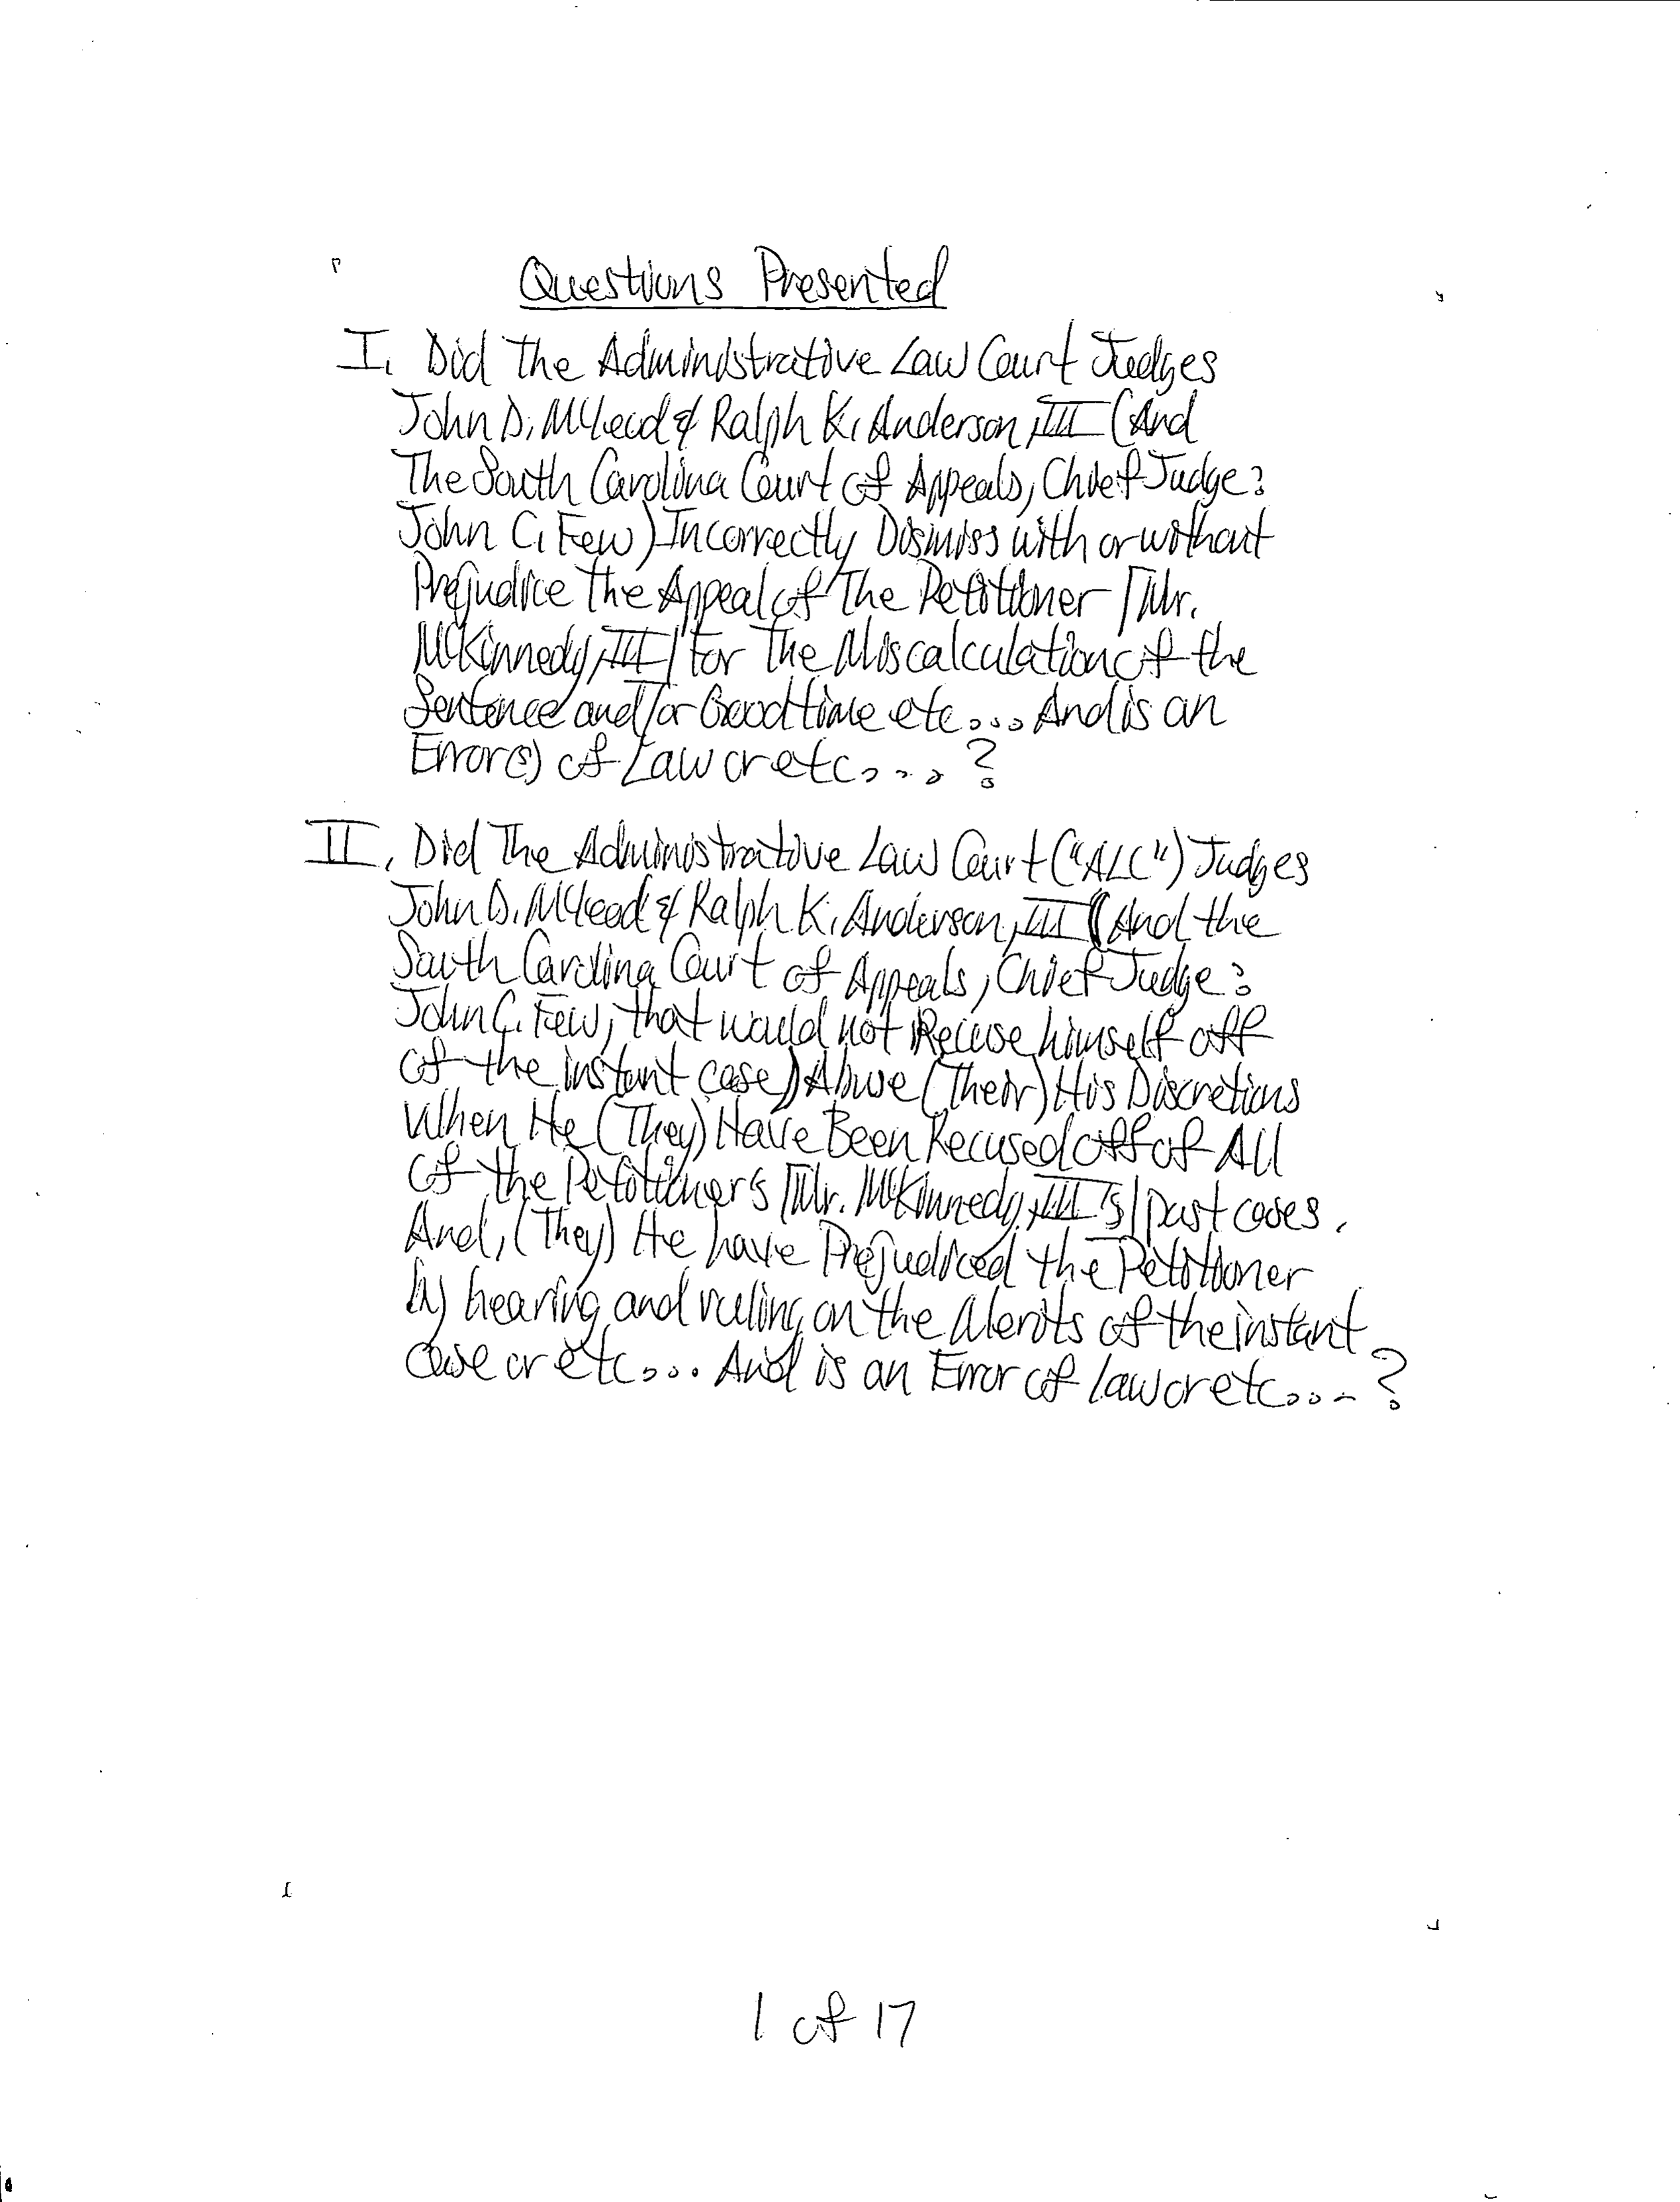 Questions Presented
I. Did The Administrative Law Court Judges
John D. McLeod & Ralph K. Anderson, III (And
The South Carolina Court of Appeals, Chief Judge:
John C. Few) Incorrectly Dismiss with or without
Prejudice The Appeal of The Petitioner [Mr.
McKinnedy, III] For The Miscalculation of the
Sentence and/or Goodtime etc... And is an
Error(s) of Law or etc....?
II. Did The Administrative Law Court ("ALC") Judges
John D. McLeod & Ralph K. Anderson, III (And the
South Carolina Court of Appeals, Chief Judge:
John C. Few, that would not Recuse himself off
of the instant case) Abuse (Their) His Discretions
When He (They) Have Been Recused off of All
of the Petitioner's [Mr. McKinnedy, III's] past cases.
And, (They) He have Prejudiced the Petitioner
by hearing and ruling on the Merits of the instant
case or etc... And is an Error of law or etc....?
1 of 17